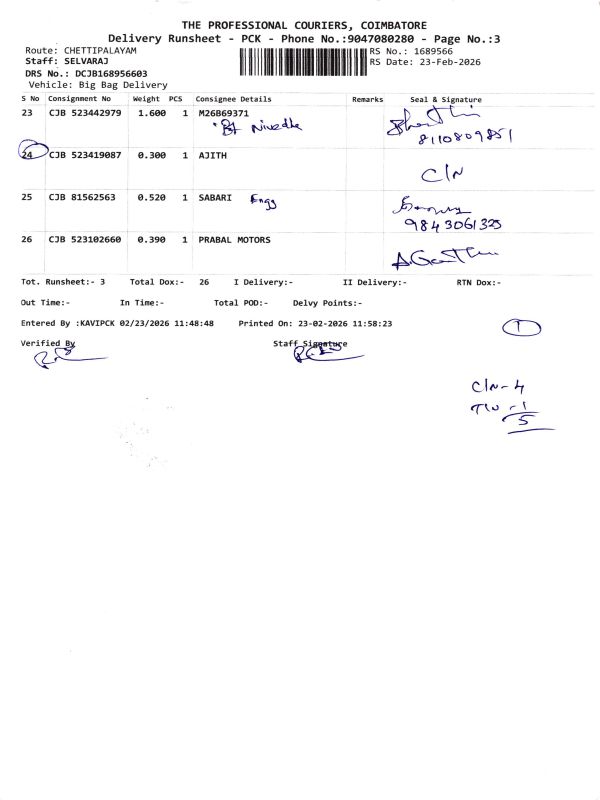 THE PROFESSIONAL COURIERS, COIMBATORE
Delivery Runsheet - PCK - Phone No.:9047080280 - Page No.:3
Route: CHETTIPALAYAM
RS No.: 1689566
Staff: SELVARAJ
RS Date: 23-Feb-2026
DRS No.: DCJB168956603
Vehicle: Big Bag Delivery
S No Consignment No Weight PCS Consignee Details Remarks Seal & Signature
23 CJB 523442979 1.600 1 M26B69371
Nivedha
8110809851
24 CJB 523419087 0.300 1 AJITH
C/N
25 CJB 81562563 0.520 1 SABARI Engg
9843061325
26 CJB 523102660 0.390 1 PRABAL MOTORS
Tot. Runsheet:- 3 Total Dox:- 26 I Delivery:- II Delivery:- RTN Dox:-
Out Time:- In Time:- Total POD:- Delvy Points:-
Entered By :KAVIPCK 02/23/2026 11:48:48 Printed On: 23-02-2026 11:58:23
Verified By Staff Signature
C/N-4
-1
5